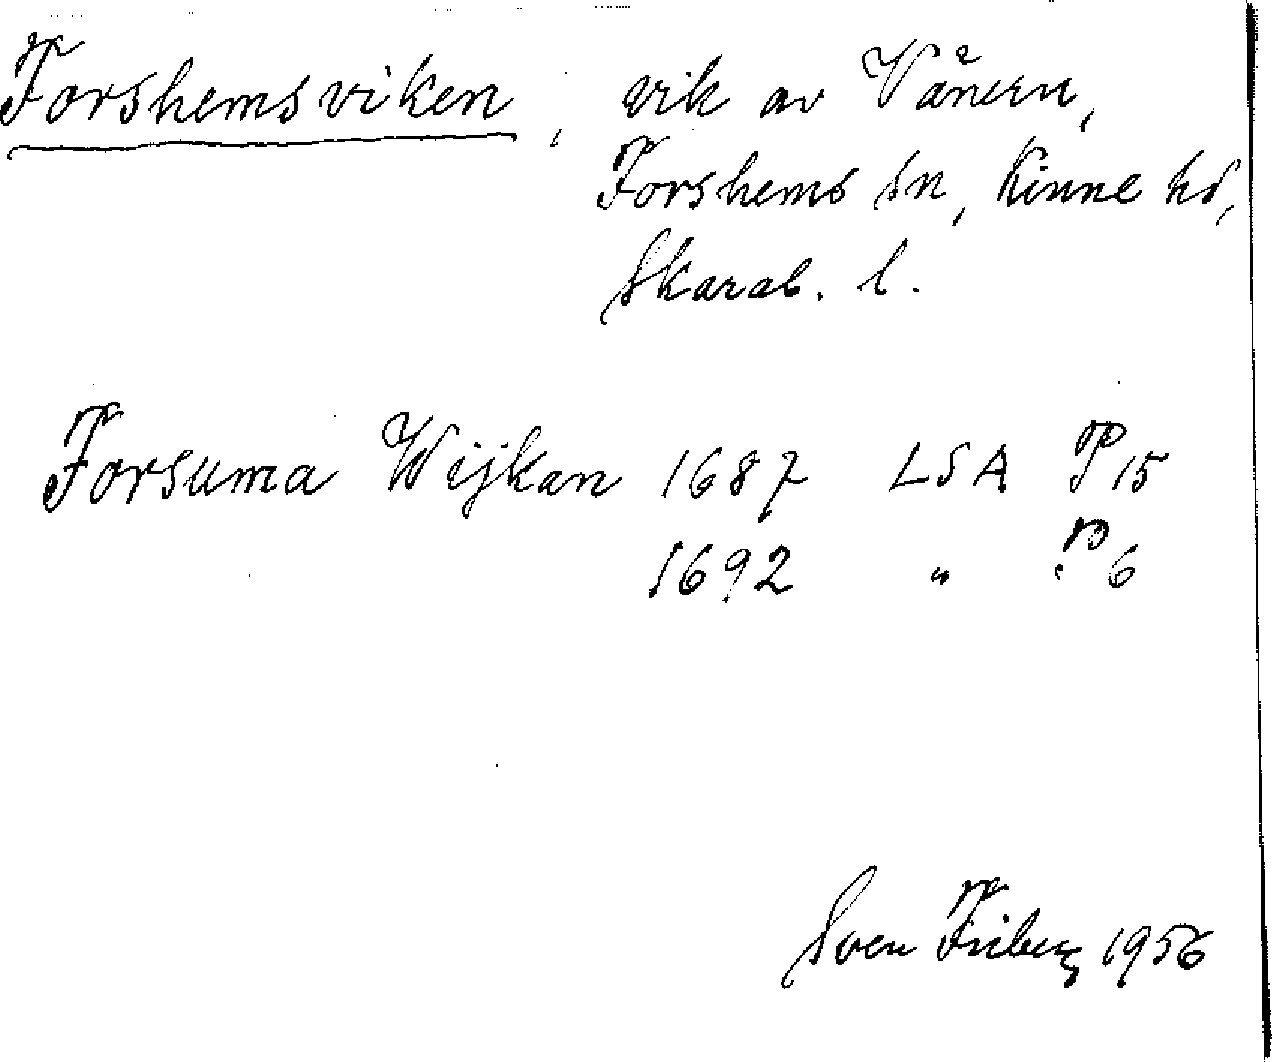 Forshemsviken, vik av Vänern,
Forshems sn, Kinne hd,
Skarab. l.
Forsuma Wijkan 1687 LSA P15
1692 " P6
Sven Friberg 1956